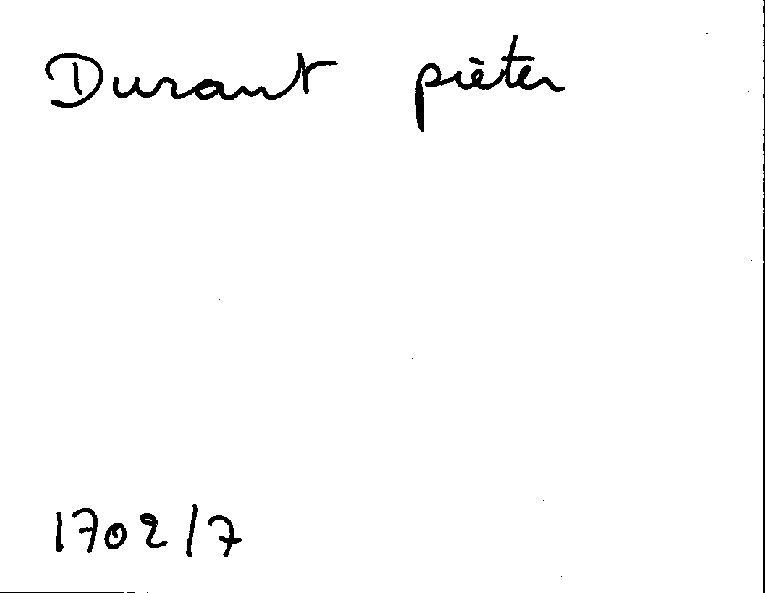 Durant pièter
1702/7